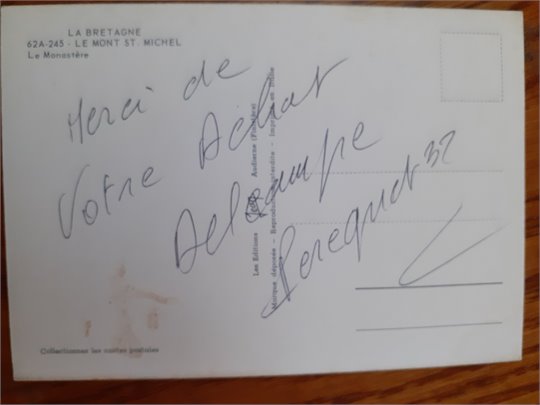 LA BRETAGNE
62A-245 - LE MONT ST. MICHEL
Le Monastère
Merci de
Votre Achat
Delcampe
Perequet 32
Les Editions Audierne (Finistère)
Marque déposée - Reproduction interdite - Imprimé en Italie
Collectionnez les cartes postales